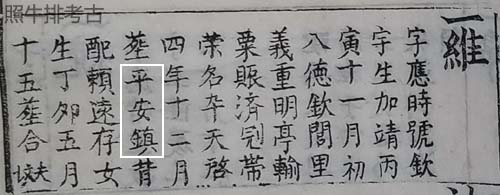 照牛排考古
一維
字應時號欽
宇生加靖丙
寅十一月初
八德欽閭里
義重明亭輸
粟賑済冠帶
荣名卒天啓
四年十二月
塟平安鎮昔
配賴遠存女
生丁夘五月
十五塟合夫坟